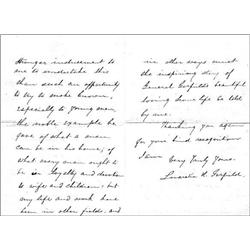 stronger inducement to
me to undertake this
than such an opportunity
to try to make known,
especially to young men,
the noble example he
gave of what a man
can be in his home; of
what every man ought to
be in loyalty and devotion
to wife and children; but
my life and work have
been in other fields; and
in other ways must
the inspiring story of
General Garfield's beautiful
loving home life be told
by me.
Thanking you again
for your kind recognition
I am
Very Truly Yours
Lucretia R. Garfield.